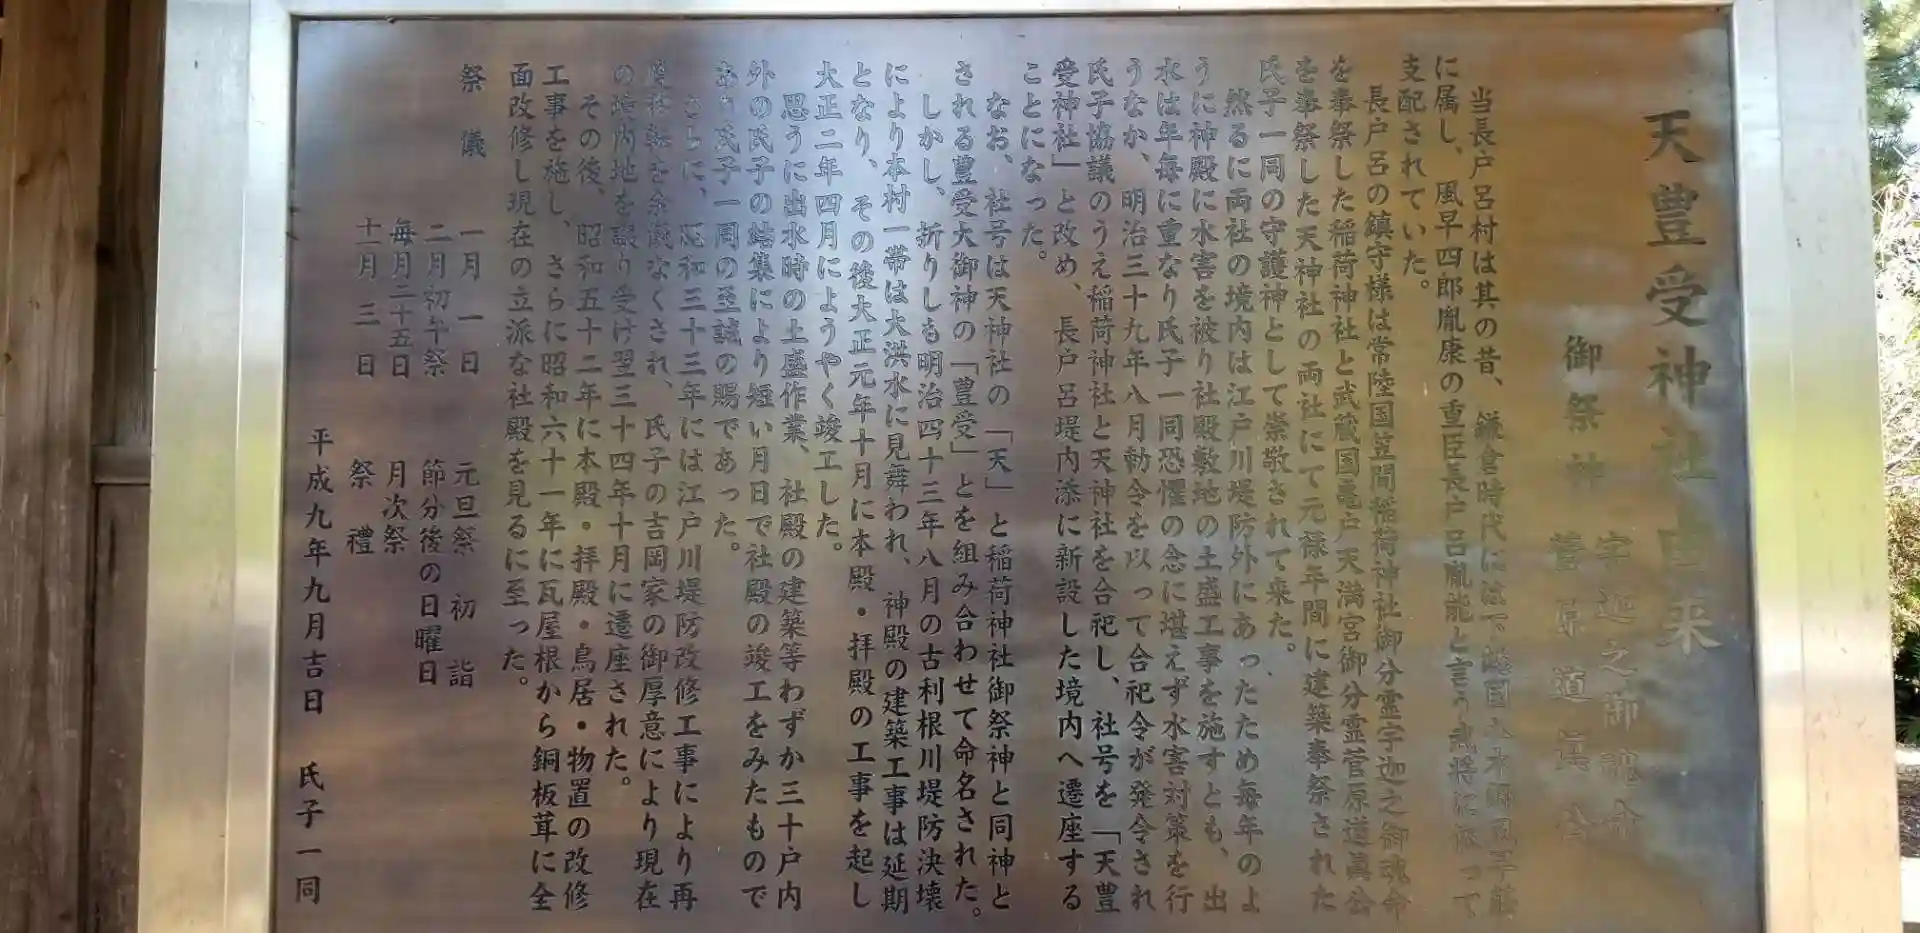 天豊受神社由来
御祭神
宇迦之御魂命
菅原道眞公
当長戸呂村は其の昔、鎌倉時代には下総国
に属し、風早四郎胤康の重臣長戸呂胤能と言う武将に依って
支配されていた。
長戸呂の鎮守様は常陸国笠間稲荷神社御分霊宇迦之御魂命
を奉祭した稲荷神社と武蔵国亀戸天満宮御分霊菅原道眞公
を奉祭した天神社の両社にて元禄年間に建築奉祭された
氏子一同の守護神として崇敬されて来た。
然るに両社の境内は江戸川堤防外にあったため毎年のよ
うに神殿に水害を被り社殿敷地の土盛工事を施すとも、出
水は年毎に重なり氏子一同恐懼の念に堪えず水害対策を行
うなか、明治三十九年八月勅令を以って合祀令が発令され
氏子協議のうえ稲荷神社と天神社を合祀し、社号を「天豊
受神社」と改め、長戸呂堤内添に新設した境内へ遷座する
ことになった。
なお、社号は天神社の「天」と稲荷神社御祭神と同神と
される豊受大御神の「豊受」とを組み合わせて命名された。
しかし、折りしも明治四十三年八月の古利根川堤防決壊
により本村一帯は大洪水に見舞われ、神殿の建築工事は延期
となり、その後大正元年十月に本殿・拝殿の工事を起し
大正二年四月にようやく竣工した。
思うに出水時の土盛作業、社殿の建築等わずか三十戸内
外の氏子の結集により短い月日で社殿の竣工をみたもので
あり氏子一同の至誠の賜であった。
さらに、昭和三十三年には江戸川堤防改修工事により再
度移転を余儀なくされ、氏子の吉岡家の御厚意により現在
の境内地を譲り受け翌三十四年十月に遷座された。
その後、昭和五十二年に本殿・拝殿・鳥居・物置の改修
工事を施し、さらに昭和六十一年に瓦屋根から銅板葺に全
面改修し現在の立派な社殿を見るに至った。
祭儀
一月一日 元旦祭 初詣
二月初午祭 節分後の日曜日
毎月二十五日 月次祭
十一月三日 祭禮
平成九年九月吉日 氏子一同